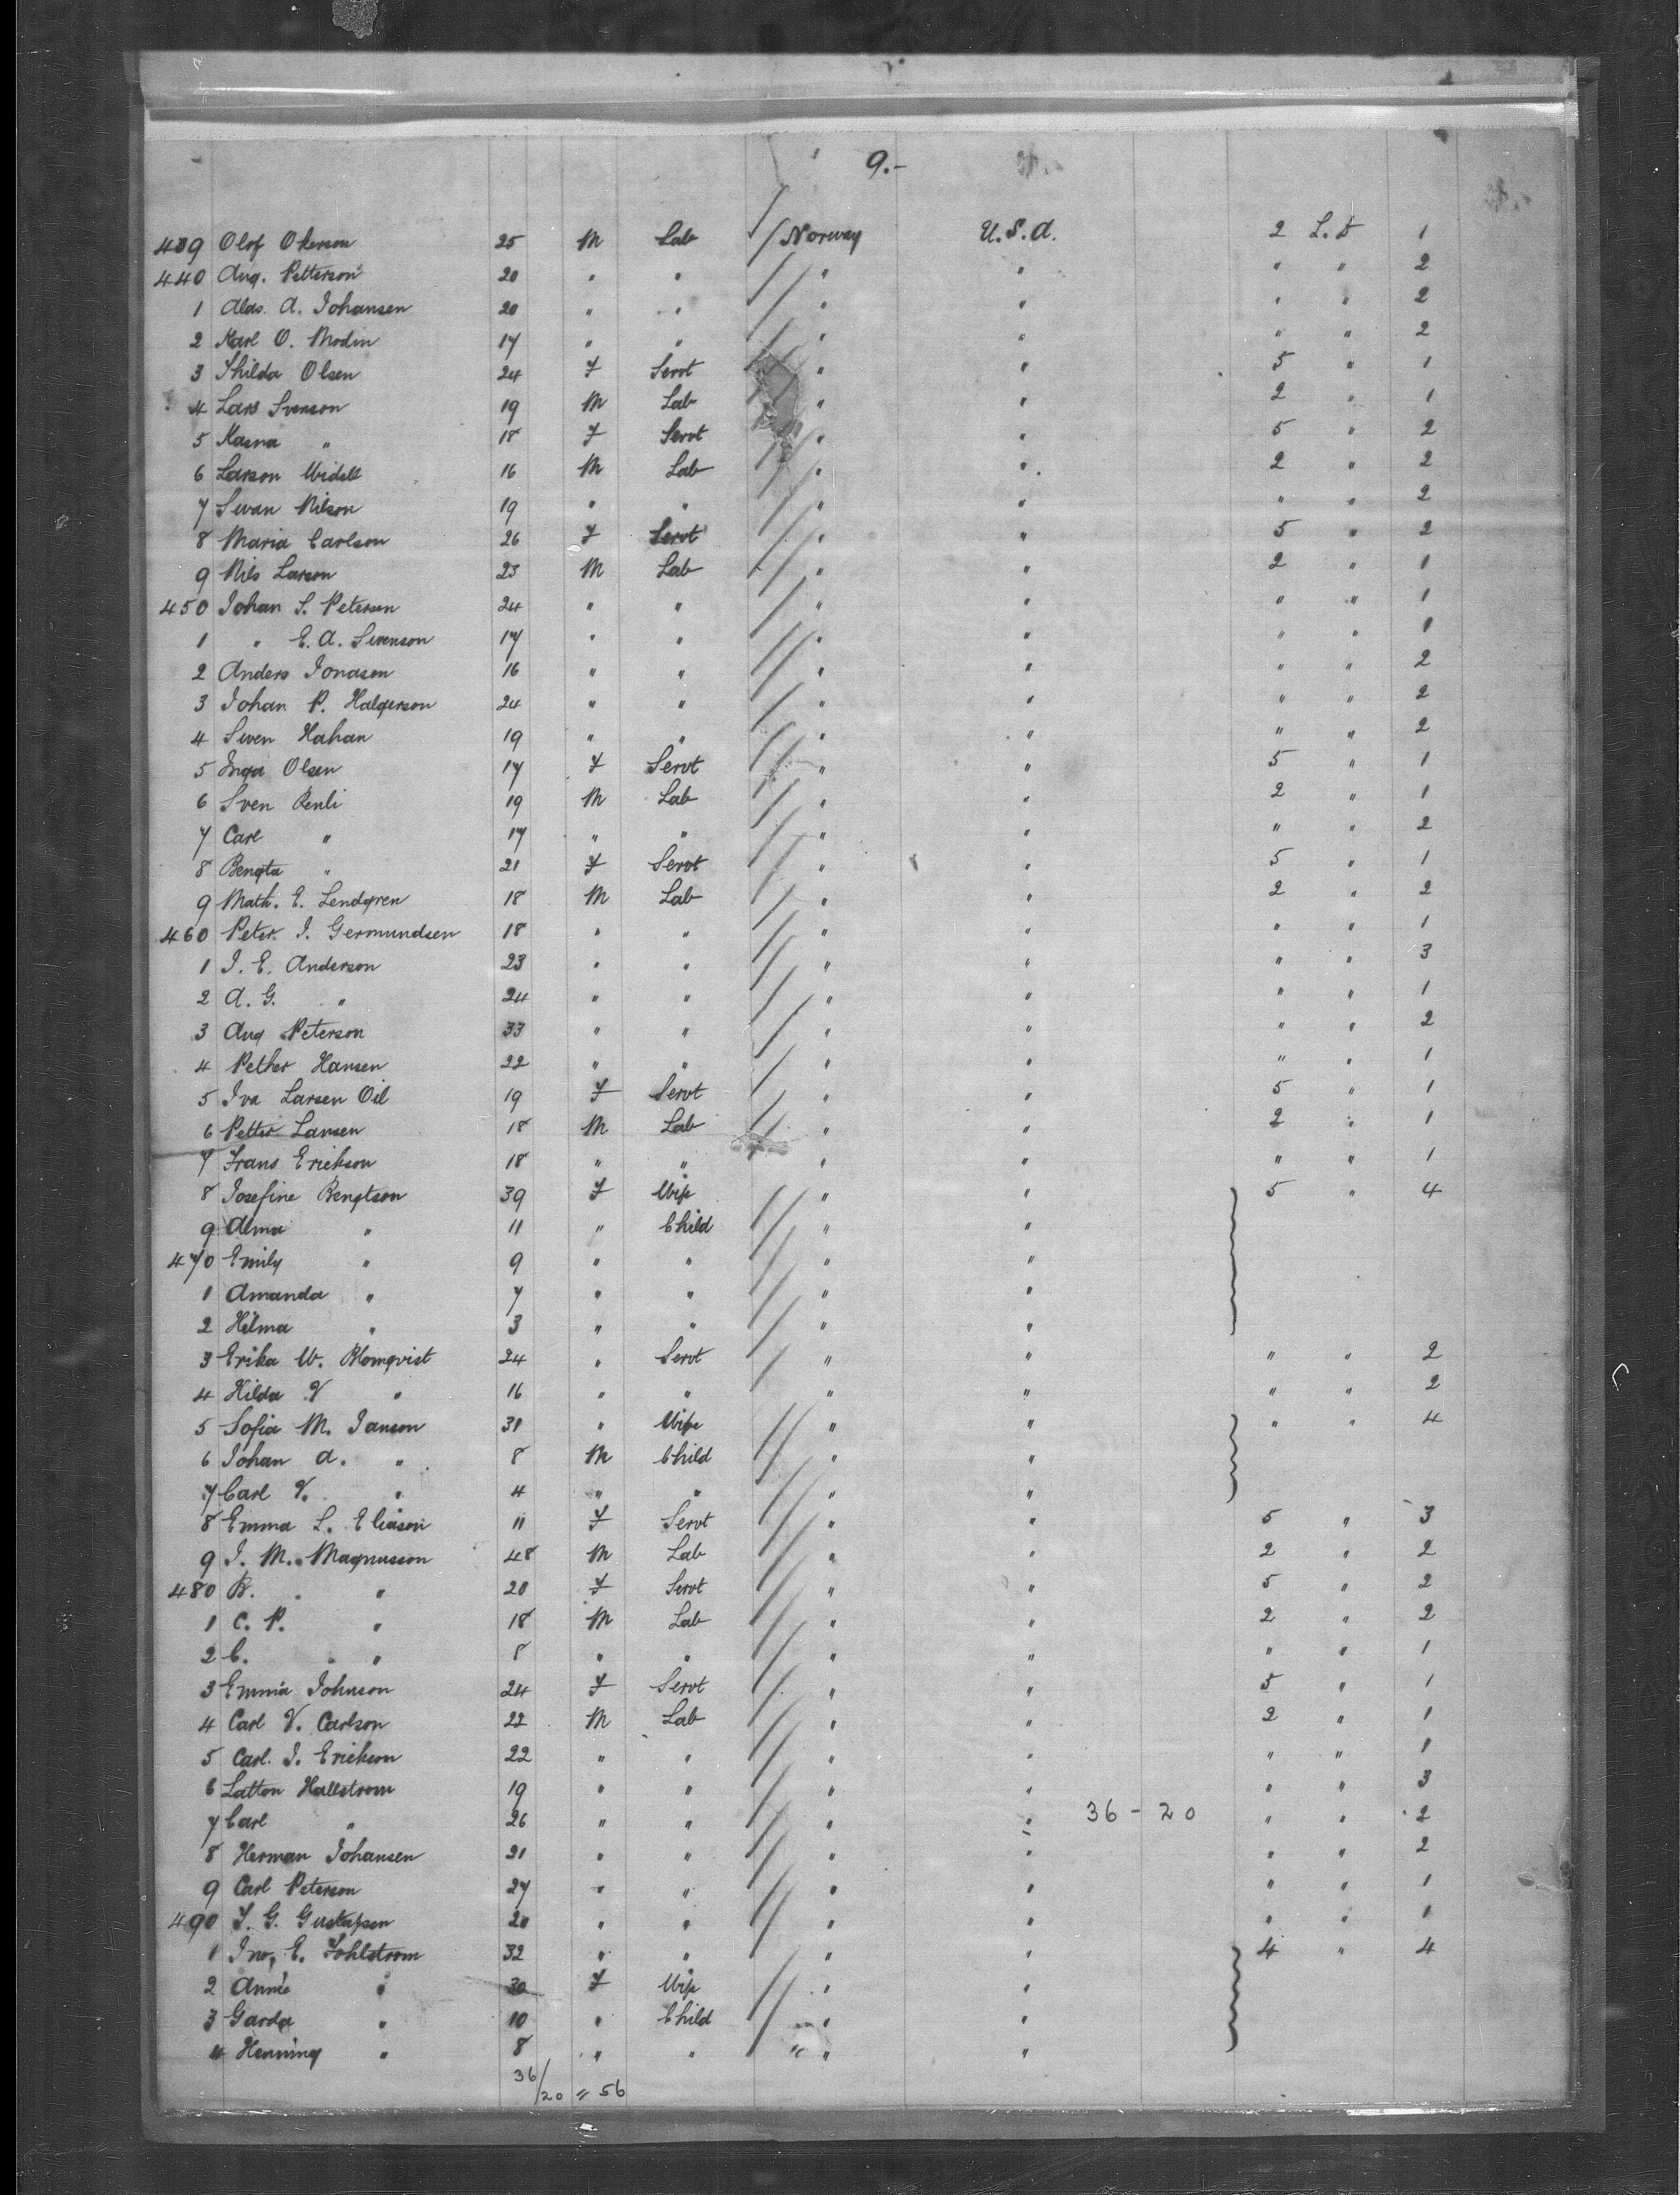 9.-
439 Olof Okerson 25 M Lab Norway U.S.A. 2 L.D 1
440 Aug. Petterson 20 " " " " " " 2
1 Alds. A. Johansen 20 " " " " " " 2
2 Karl O. Modin 17 " " " " " " 2
3 Thilda Olsen 24 F Servt " " 5 " 1
4 Lars Svenson 19 M Lab " " 2 " 1
5 Karna " 18 F Servt " " 5 " 2
6 Larson Widell 16 M Lab " " 2 " 2
7 Swan Nilson 19 " " " " " " 2
8 Maria Carlson 26 F Servt " " 5 " 2
9 Nils Larson 23 M Lab " " 2 " 1
450 Johan S. Petersen 24 " " " " " " 1
1 " E. A. Swenson 17 " " " " " " 1
2 Anders Jonasen 16 " " " " " " 2
3 Johan P. Halgerson 24 " " " " " " 2
4 Swen Hahan 19 " " " " " " 2
5 Inga Olsen 17 F Servt " " 5 " 1
6 Sven Renli 19 M Lab " " 2 " 1
7 Carl " 17 " " " " " " 2
8 Bengta " 21 F Servt " " 5 " 1
9 Math. E. Lendgren 18 M Lab " " 2 " 2
460 Peter J. Germundsen 18 " " " " " " 1
1 J. E. Anderson 23 " " " " " " 3
2 A. G. " 24 " " " " " " 1
3 Aug Peterson 33 " " " " " " 2
4 Pether Hansen 22 " " " " " " 1
5 Iva Larsen Oil 19 F Servt " " 5 " 1
6 Petter Lansen 18 M Lab " " 2 " 1
7 Frans Erickson 18 " " " " " " 1
8 Josefine Bengtson 39 F Wife " " 5 " 4
9 Alma " 11 " Child " "
470 Emily " 9 " " " "
1 Amanda " 7 " " " "
2 Hilma " 3 " " " "
3 Erika W. Blomqvist 24 " Servt " " " " 2
4 Hilda V " 16 " " " " " " 2
5 Sofia M. Janson 31 " Wife " " " " 4
6 Johan A. " 8 M Child " "
7 Carl V. " 4 " " " "
8 Emma L. Eliason 11 F Servt " " 5 " 3
9 J. M. Magnusson 48 M Lab " " 2 " 2
480 B. " 20 F Servt " " 5 " 2
1 C. P. " 18 M Lab " " 2 " 2
2 C. " 8 " " " " " " 1
3 Emma Johnson 24 F Servt " " 5 " 1
4 Carl V. Carlson 22 M Lab " " 2 " 1
5 Carl. J. Erickson 22 " " " " " " 1
6 Latton Hallstrom 19 " " " " " " 3
7 Carl " 26 " " " " 36-20 " " 2
8 Herman Johansen 21 " " " " " " 2
9 Carl Peterson 27 " " " " " " 1
490 F. G. Gustafsen 20 " " " " " " 1
1 Jno, E. Fohlstrom 32 " " " " 4 " 4
2 Annie " 30 F Wife " "
3 Garda " 10 " Child " "
4 Henning " 8 " " " "
36/20 = 56